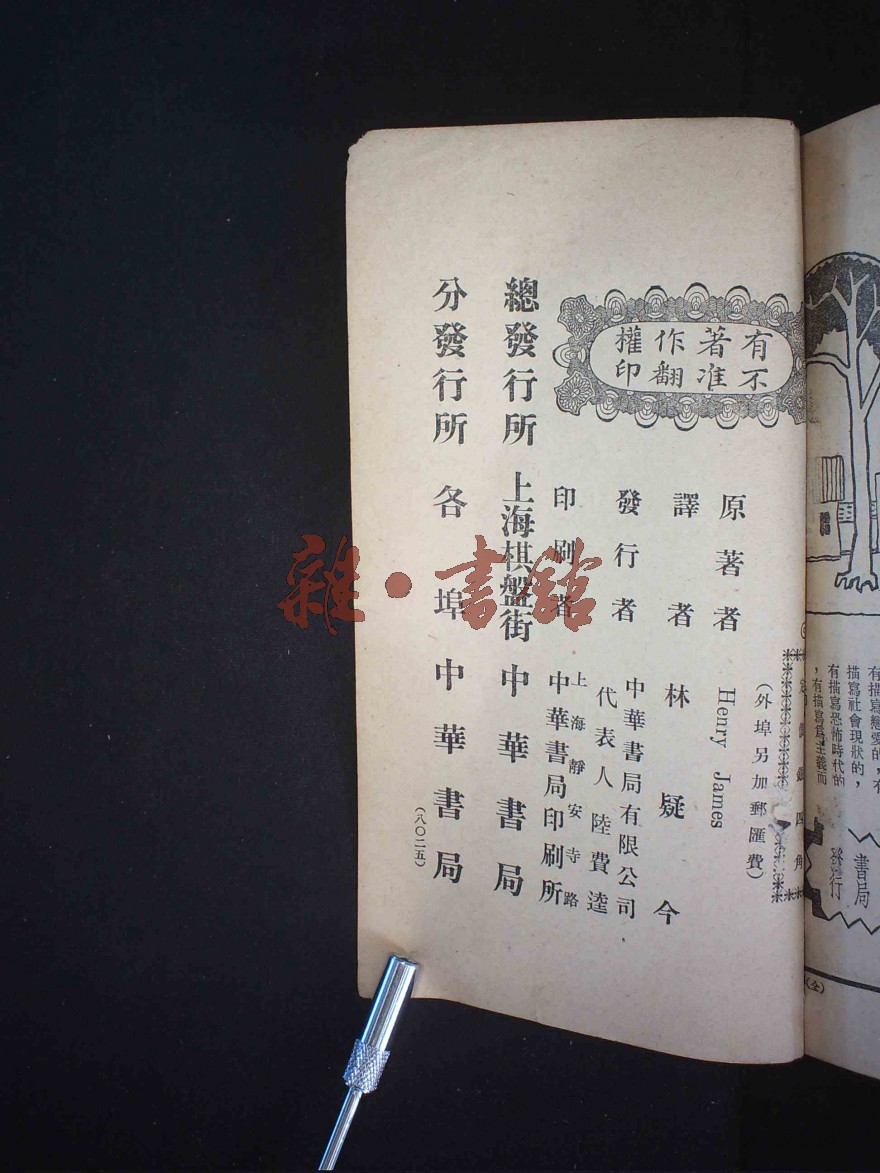 有著作權
不准翻印
定價銀四角
（外埠另加郵匯費）
原著者 Henry James
譯者 林疑今
發行者 中華書局有限公司
代表人 陸費逵
印刷者 上海靜安寺路
中華書局印刷所
總發行所 上海棋盤街 中華書局
分發行所 各埠中華書局
（八〇二五）
有描寫戀愛的，有
描寫社會現狀的，
有描寫恐怖時代的
，有描寫爲主義而
書局
發行
（全）
雜·書館